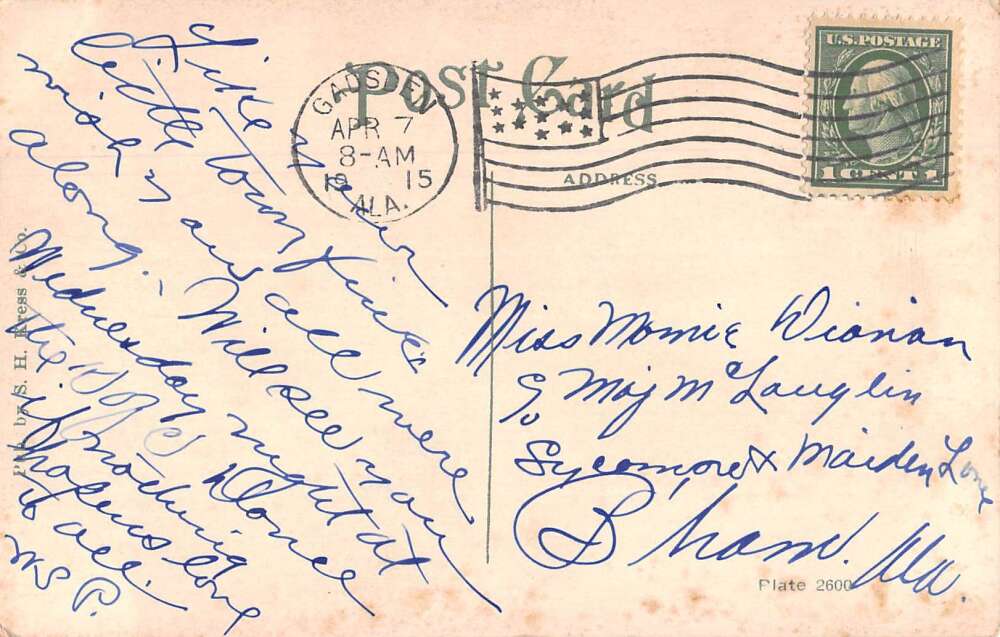 Post Card
GADSDEN
APR 7
8-AM
19 15
ALA.
U.S. POSTAGE
1 CENT 1
ADDRESS
Pub. by S. H. Kress & Co.
Like your
little town fine
wish u and all were
along. - Will see you
Wednesday night at
the Dance
if nothing
hapens love
to all.
Miss Momie Dionan
c/o Maj McLauglin
Sycomore & Maiden Lane
B'ham. Ala.
Plate 2600